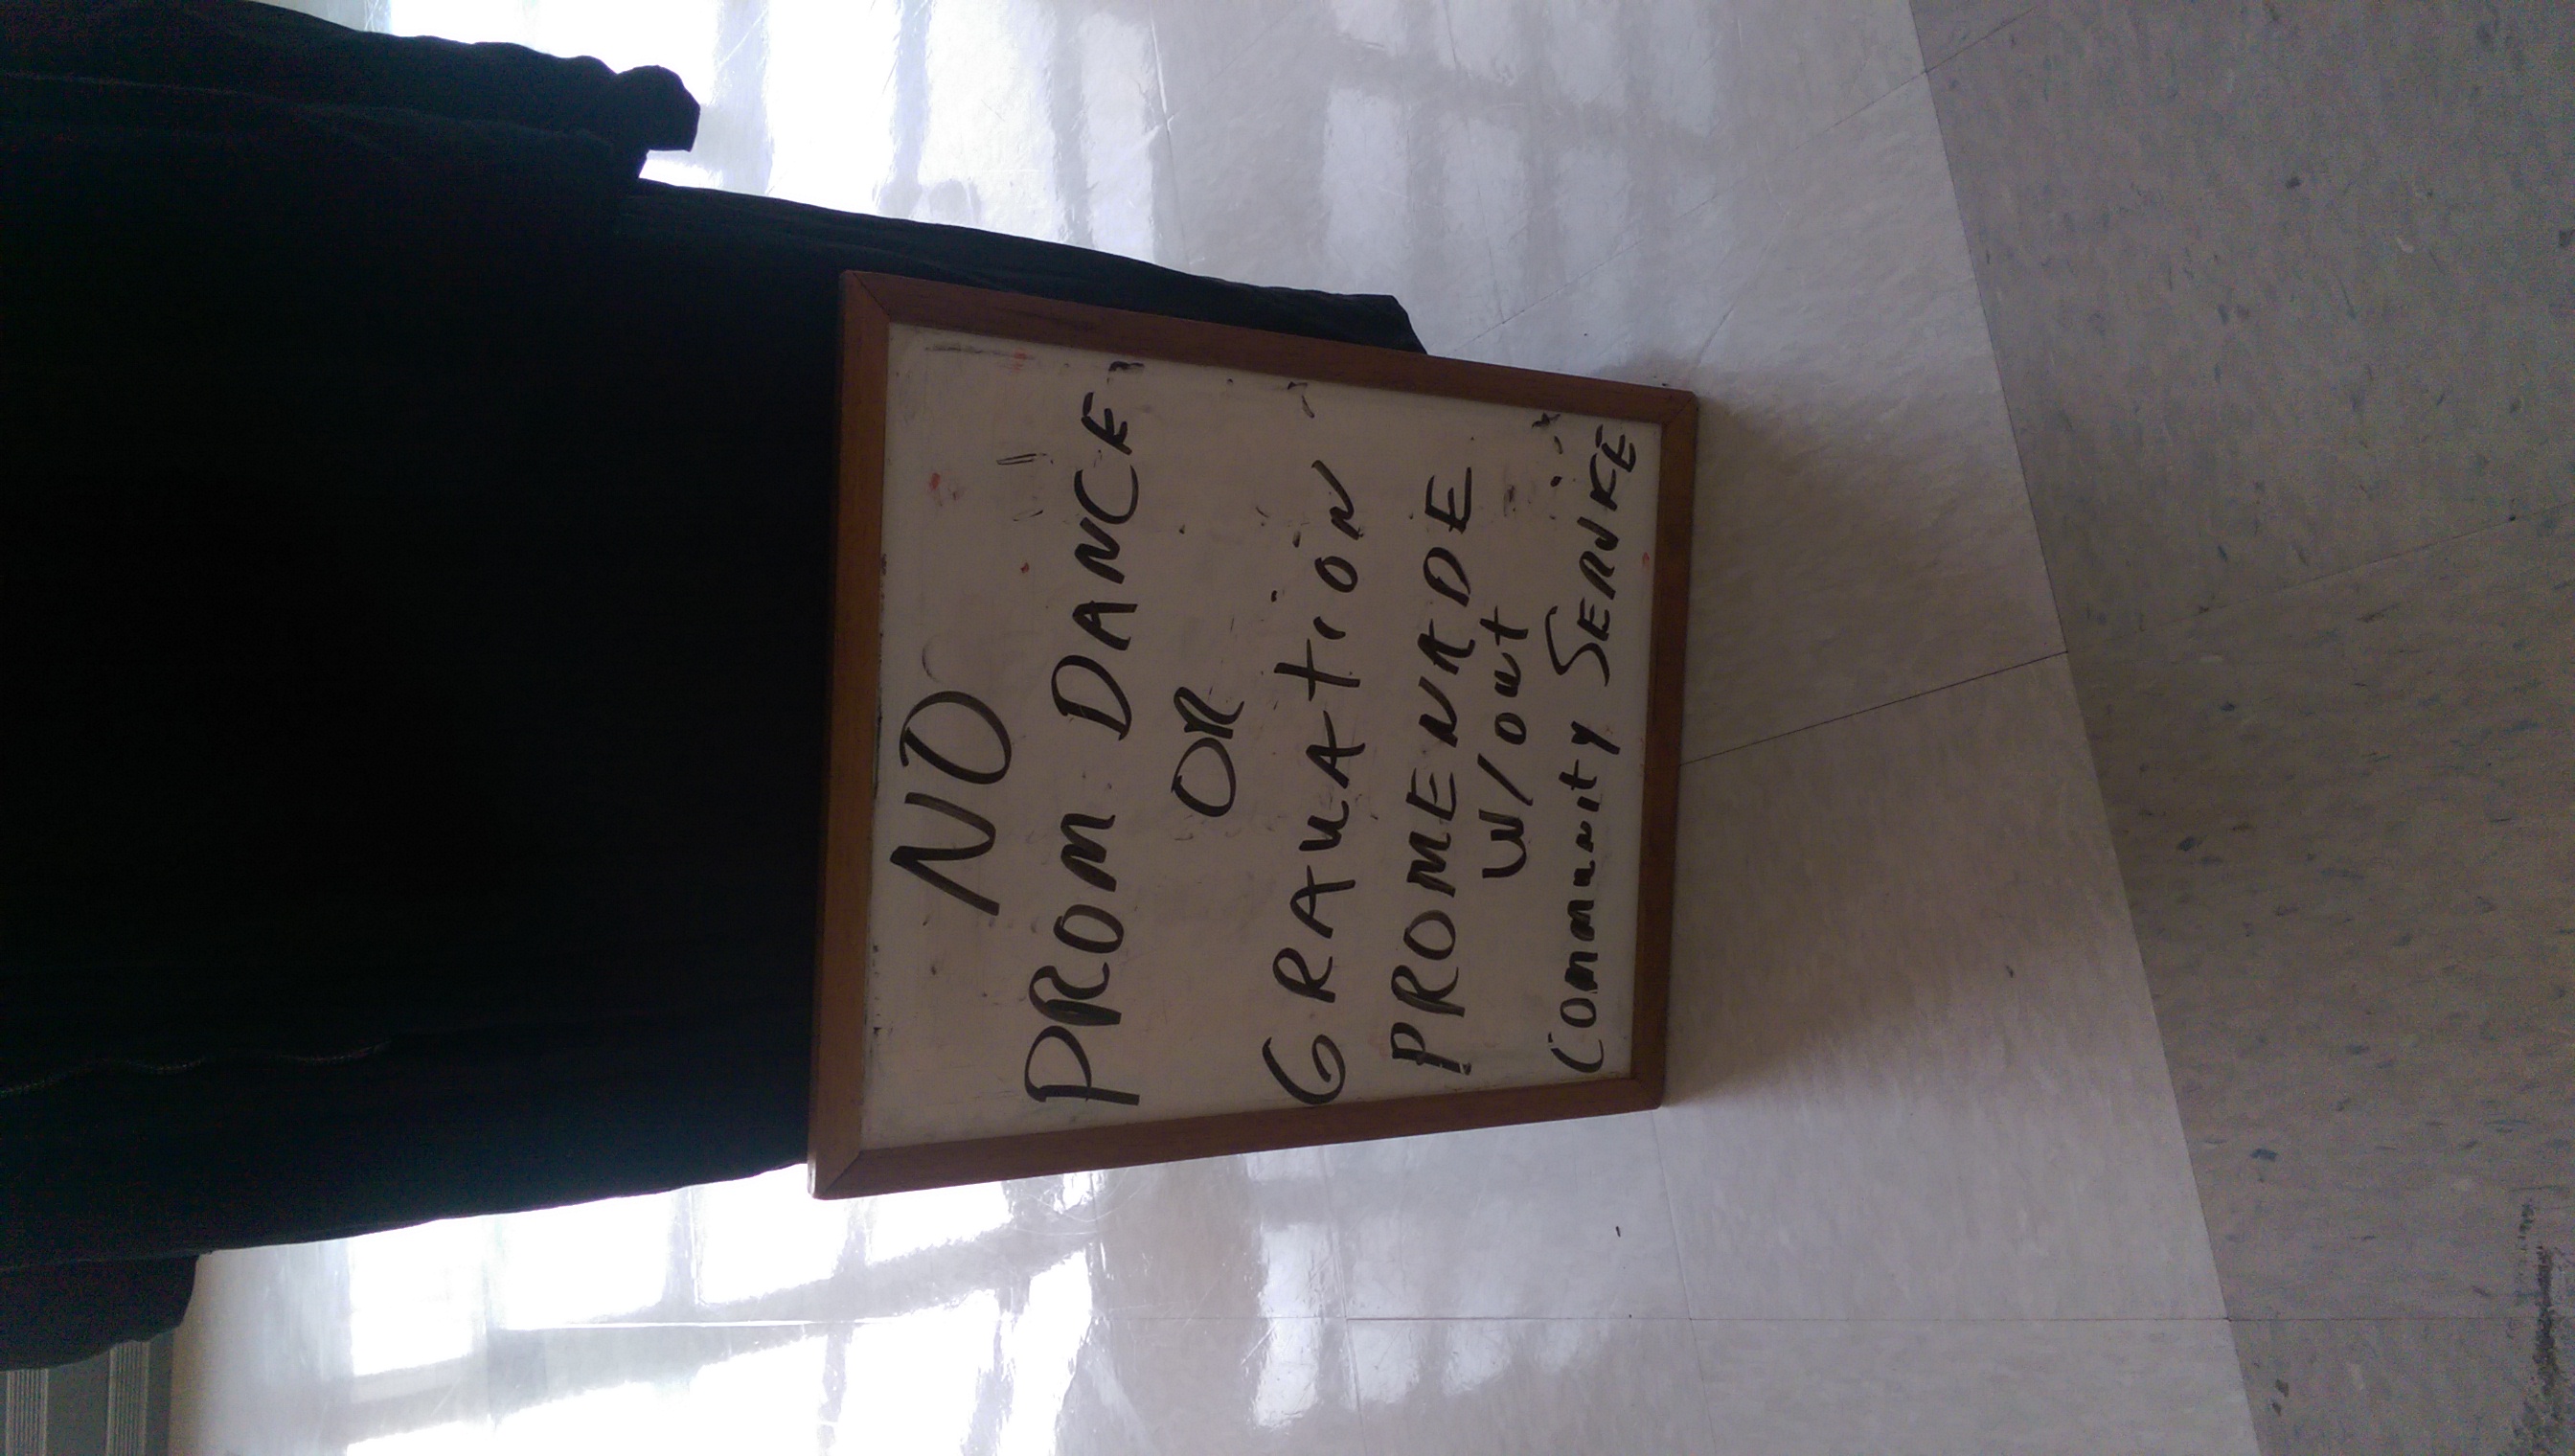 NO
PROM DANCE
OR
GRAUATION
PROMENADE
W/out
Community SERVICE